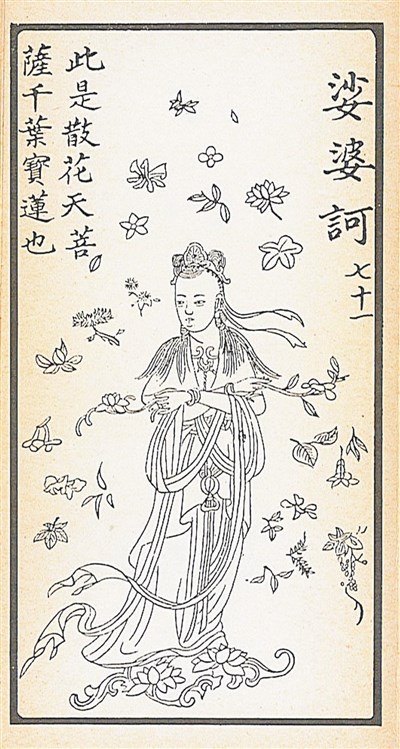 娑婆訶 七十一
此是散花天菩
薩千葉寶蓮也